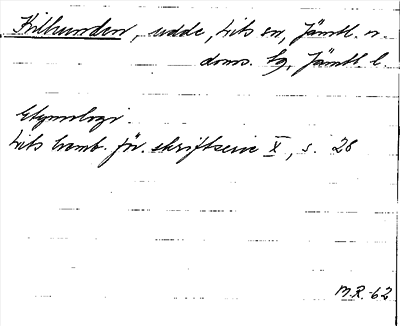 Kilhundan, udde, Lits sn, Jämtl. n.
doms. tg, Jämtl. l.
Etymologi.
Lits hemb. för. skriftserie X, s. 28
M.R.-62